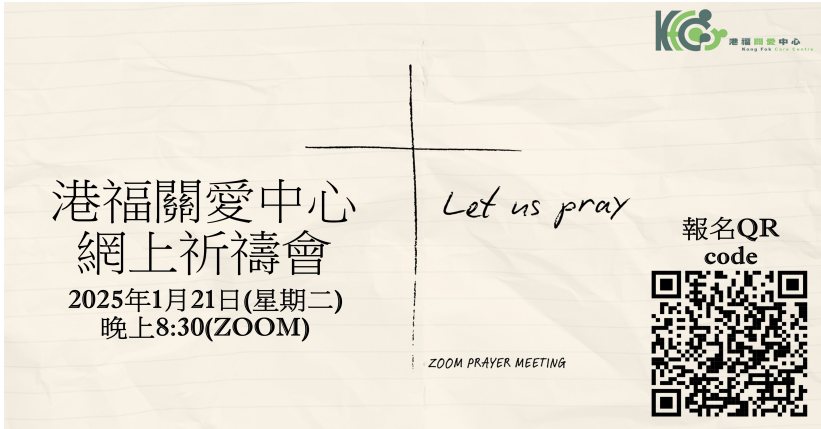 港福關愛中心
Kong Fok Care Centre
港福關愛中心
網上祈禱會
2025年1月21日(星期二)
晚上8:30(ZOOM)
Let us pray
ZOOM PRAYER MEETING
報名QR
code